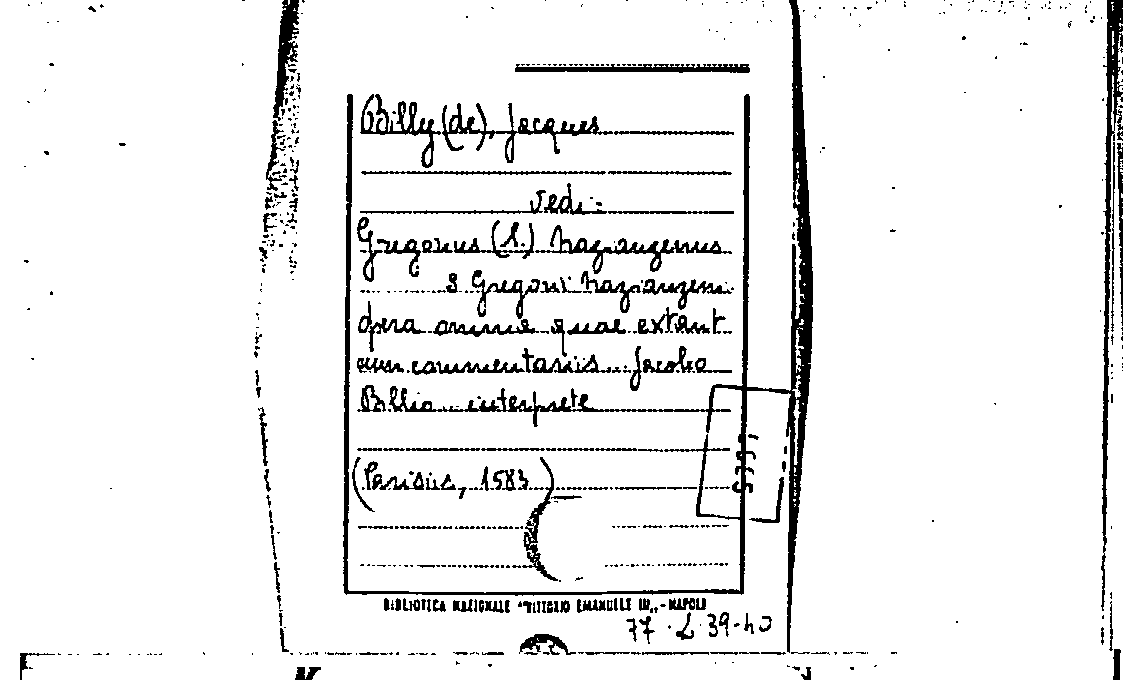 Billy (de), Jacques
Vedi:
Gregorius (S.) Nazianzenus
S Gregorii Nazianzeni
Opera omnia quae extant
cum commentariis... Jacobo
Billio... interprete
(Parisiis, 1583)
BIBLIOTECA NAZIONALE "VITTORIO EMANUELE III„ - NAPOLI
77 L 39-40